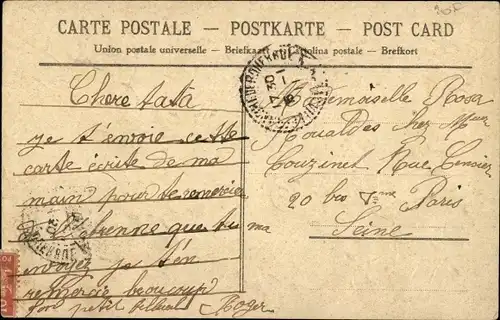 CARTE POSTALE — POSTKARTE — POST CARD
Union postale universelle — Briefkaart — Cartolina postale — Brefkort
Chere tata
je t'envoie cette
carte écrite de ma
main pour te remercier
etrenne que tu ma
envoyer je t'en
remercie beaucoup
ton petit Roger
Mademoiselle Rosa
Roualdes chez Mme
Couzinet Rue Censier
20 bis 5eme Paris
Seine